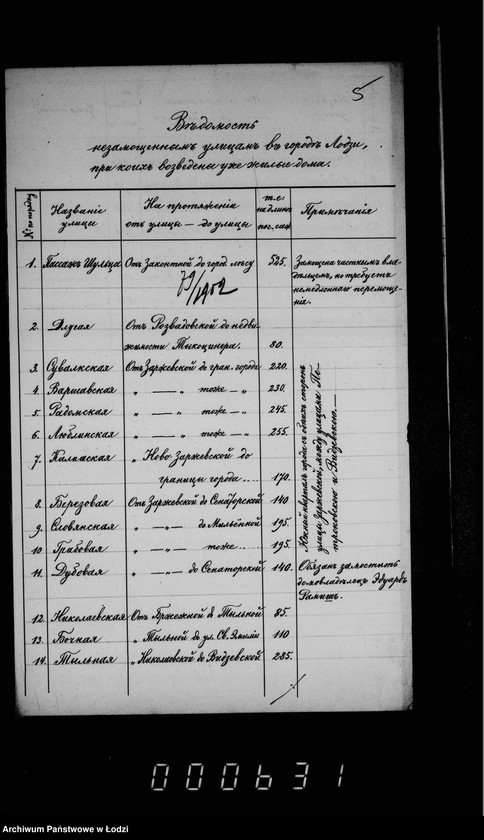 5
Вѣдомость
незамощеннымъ улицамъ въ городѣ Лодзи,
при коихъ возведены уже жилые дома.
№ по порядку
Названіе улицы
На протяженіи отъ улицы — до улицы
т.е. на длину пог. саж.
Примѣчанія
1. Пассажъ Шульца Отъ Закантной до город. лѣсу 525. Замощена частнымъ вла-
дѣльцемъ, но требуетъ
немедленнаго перемоще-
нія.
79/1902
2. Длугая Отъ Розвадовской до недви-
жимости Тыкоцинера. 80.
3. Сувалкская Отъ Заржевской до гран. города 220.
4. Варшавская " — " тоже — " 230.
5. Радомская " — " тоже — " 245.
6. Люблинская " — " тоже — " 255.
7. Калишская " Ново-Заржевской до
границы города... 170.
Южный кварталъ города съ обѣихъ сторонъ
улицы Заржевской, между улицами Пе-
троковскою и Видзевскою.—
8. Березовая Отъ Заржевской до Сенаторской 140
9. Словянская " —"— до Мильёной 195.
10 Грабовая " —"— тоже.... 195.
11. Дубовая " —"— до Сенаторской 140. Обязанъ замостить
домовладѣлецъ Эдуардъ
Рамишъ.
12. Николаевская Отъ Бржежной до Тыльной 85.
13. Бочная " Тыльной до ул. Св. Эмиліи 110
14. Тыльная " Николаевской до Видзевской 285.
000631
Archiwum Państwowe w Łodzi